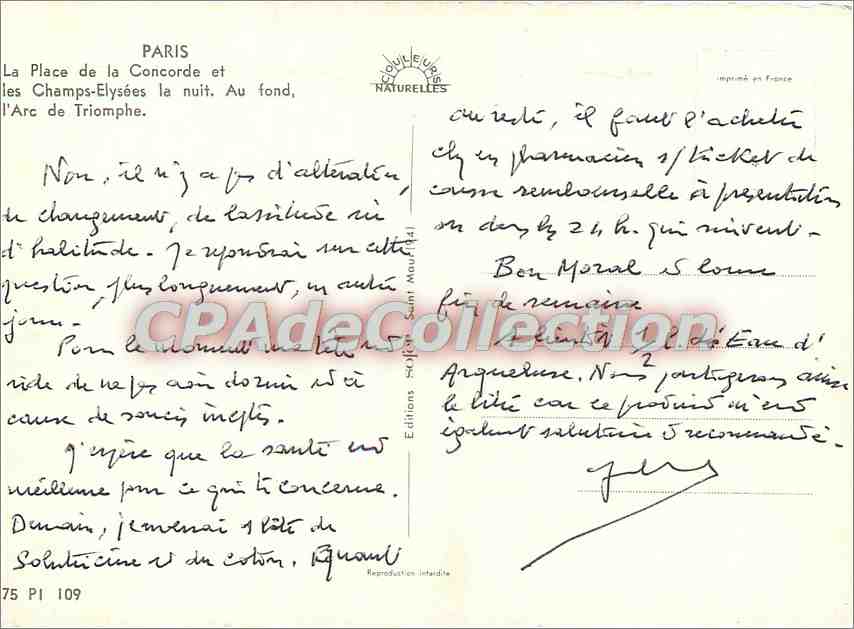 PARIS
La Place de la Concorde et
les Champs-Elysées la nuit. Au fond,
l'Arc de Triomphe.
COULEURS
NATURELLES
Imprimé en France
Non, il n'y a pas d'altération,
de changement, de lassitude ni
d'habitude. Je répondrai sur cette
question, plus longuement, un autre
jour.
Pour le moment ma tête est
vide de ne pas avoir dormi et à
cause de soucis ineptes.
J'espère que la santé est
meilleure pour ce qui te concerne.
Demain, j'enverrai 1 bté de
et du coton. Quant
au reste, il faut l'acheter
chez un pharmacien s/ticket de
caisse remboursable à présentation
ou dans les 24 h. qui suivent.
Bon Moral et bonne
fin de semaine
A bientôt 1/2 l d'Eau d'
Arquebuse. Nous partagerons ainsi
le litre car ce produit m'est
également salutaire et recommandé.
Editions SOFER Saint Maur (94)
CPAdeCollection
Reproduction interdite
75 PI 109